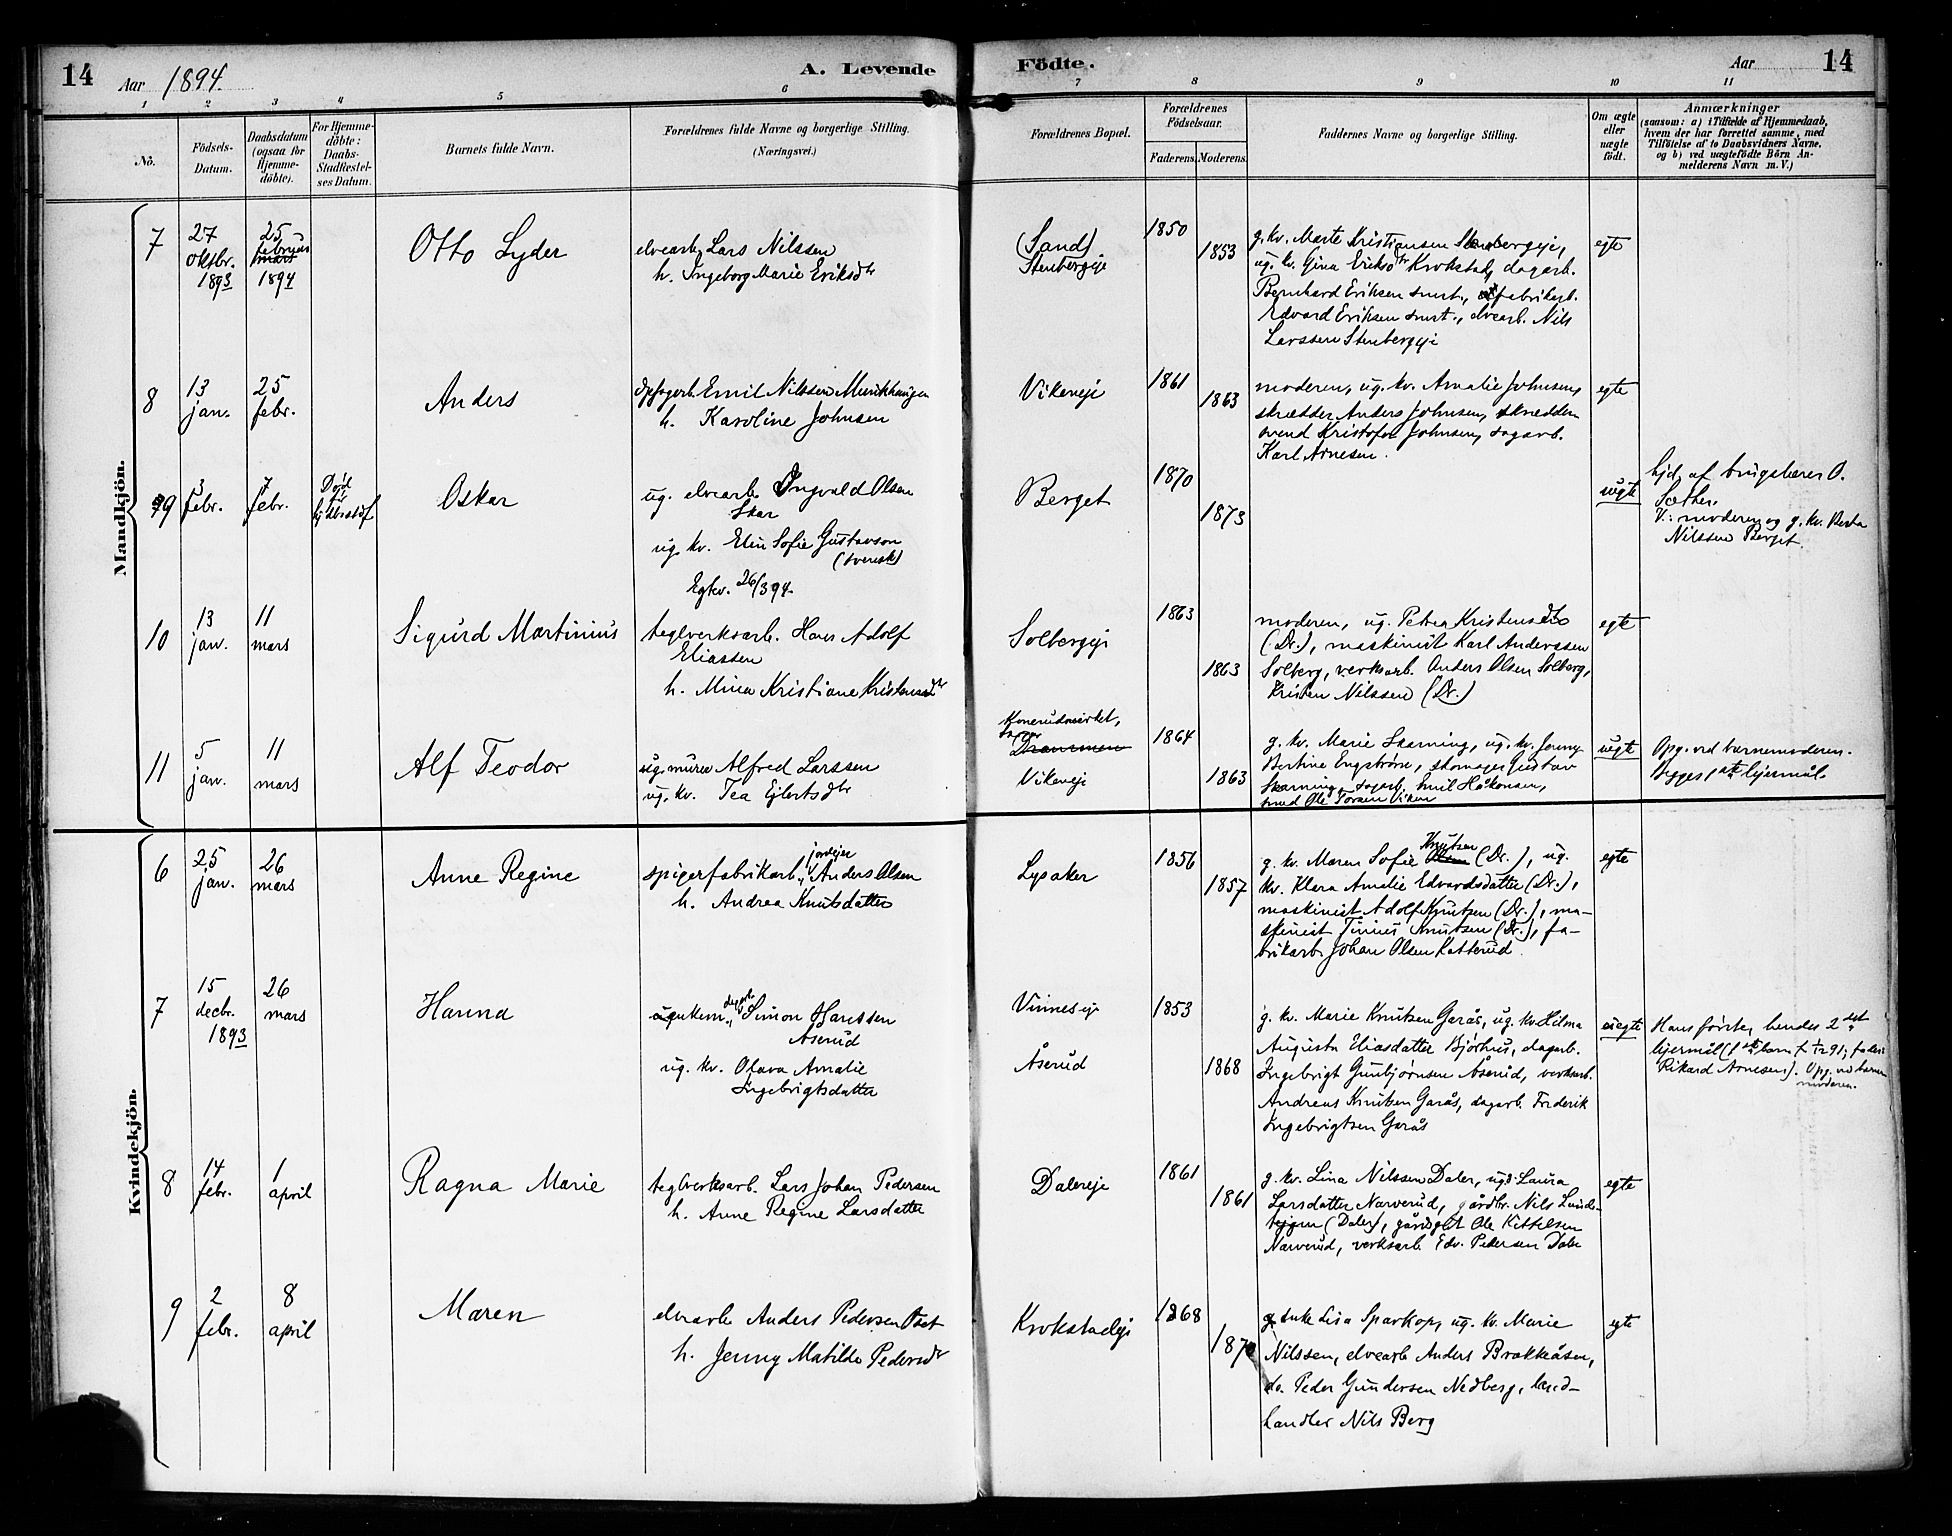 14
Aar 1894.
A. Levende
Födte.
Aar
14
1 2 3 4 5 6 7 8 9 10 11
No.
Födsels-
Datum.
Daabsdatum
(ogsaa for
Hjemme-
döbte).
For Hjemme-
döbte:
Daabs-
Stadfæstel-
ses Datum.
Barnets fulde Navn.
Forældrenes fulde Navne og borgerlige Stilling.
(Næringsvei.)
Forældrenes Bopæl.
Forældrenes
Födselsaar.
Faderens.
Moderens.
Faddernes Navne og borgerlige Stilling.
Om ægte
eller
uægte
födt.
Anmærkninger
(saasom: a) i Tilfælde af Hjemmedaab,
hvem der har forrettet samme, med
Tilföielse af to Daabsvidners Navne,
og b) ved uægtefödte Börn An-
melderens Navn m. V.)
Mandkjön.
7
27
oktbr.
1893
25
februar
mars
1894
Otto Lyder
elvearb. Lars Nilssen
h. Ingeborg Marie Eriksdtr
(Sand)
Stenbergeje
1850
1853
g. kv. Marte Kristiansen Stenbergeje,
ug. kv. Gina Eriksdtr Krokstad, dagarb.
Bernhard Eriksen smst., fabrikarb.
Edvard Eriksen smst., elvearb. Nils
Larssen Stenbergeje
egte
8
13
jan.
25
febr.
Anders
Emil Nilssen Munkhaugen
h. Karoline Johnsen
Vikeneje
1861
1863
moderen, ug. kv. Amalie Johnsen,
skrædder Anders Johnsen, skrædder
svend Kristofer Johnsen, sagarb.
Karl Arnesen.
egte
9
3
febr.
7
febr.
Død
før
Oskar
ug. elvearb. Ingvald Olsen
Skar
ug. kv. Elin Sofie Gustavson
(svensk)
Egtev. 26/3 94.
Berget
1870
1873
uegte
hjd. af brugseier O.
Sæther.
V.: moderen og g. kv. Berta
Nilssen Berget.
10
13
jan.
11
mars
Sigurd Martinius
teglverksarb. Hans Adolf
Eliassen
h. Mina Kristiane Kristensdtr
Solbergeje
1863
1863
moderen, ug. Petra Kristensdtr
(Dr.), maskinist Karl Anderssen
Solberg, verksarb. Anders Olsen Solberg,
Kristen Nilssen (Dr.)
egte
11
5
jan.
11
mars
Alf Teodor
ug. murer Alfred Larssen
ug. kv. Tea Ejlertsdtr
Konerudværket,
Skoger
Drammen
Vikeneje
1864
1863
g. kv. Marie Skarning, ug. kv. Jenny
Bertine Engstrøm, skomager Gustav
Skarning, sagarb. Emil Håkonsen,
smed Ole Torsen Viken
uegte
Opg. ved barnemoderen.
Begges 1ste lejermål.
Kvindekjön.
6
25
jan.
26
mars
Anne Regine
jordejer
spigerfabrikarb. Anders Olsen
h. Andrea Knutsdatter
Lysaker
1856
1857
Knutsen
g. kv. Maren Sofie Olsen (Dr.), ug.
kv. Klara Amalie Edvardsdatter (Dr.),
maskinist Adolf Knutsen (Dr.), ma-
skinist Tinius Knutsen (Dr.), fa-
brikarb. Johan Olsen Katterud.
egte
7
15
decbr.
1893
26
mars
Hanna
dagarb.
Simon Hanssen
Åserud
ug. kv. Olava Amalie
Ingebrigtsdatter
Vinnesej
Åserud
1853
1868
g. kv. Marie Knutsen Garås, ug. kv. Hilma
Augusta Eliasdatter Bjørhus, dagarb.
Ingebrigt Gunbjørnsen Åserud, verksarb.
Andreas Knutsen Garås, dagarb. Frederik
Ingebrigtsen Garås
uegte
Hans første, hendes 2det
lejermål (1ste barn f. 1/12 91; fader:
Rikard Arnesen). Opg. ved barne
moderen.
8
14
febr.
1
april
Ragna Marie
teglverksarb. Lars Johan Pedersen
h. Anne Regine Larsdatter
Dalereje
1861
1861
g. kv. Lina Nilssen Daler, ug. Laura
Larsdatter Narverud, gårdbr. Nils Lunds-
tejgen (Daler), Ole Kittelsen
Narverud, verksarb. Edv. Pedersen Daler
egte
9
2
febr.
8
april
Maren
elvearb. Anders Pedersen
h. Jenny Matilde Pedersdtr
Krokstadeje
1868
1870
enke Lisa Sparkop, ug. kv. Marie
Nilssen, elvearb. Anders Brakkeåsen,
do. Peder Gundersen Nedberg, land-
handler Nils Berg
egte